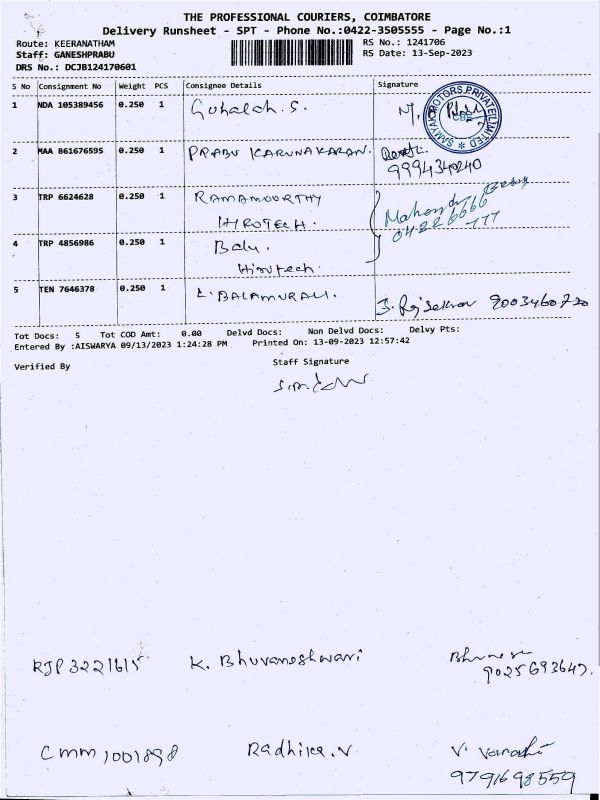 THE PROFESSIONAL COURIERS, COIMBATORE
Delivery Runsheet - SPT - Phone No.:0422-3505555 - Page No.:1
Route: KEERANATHAM
RS No.: 1241706
Staff: GANESHPRABU
RS Date: 13-Sep-2023
DRS No.: DCJB124170601
S No Consignment No Weight PCS Consignee Details Signature
1 NDA 105389456 0.250 1 S. M.
SAMIYAK MOTORS PRIVATE LIMITED CBE
2 MAA 861676595 0.250 1 PRABU KARUNAKARAN.
9994340240
3 TRP 6624628 0.250 1 RAMAMOORTHY
HIROTECH.
Mahendran
4 TRP 4856986 0.250 1 Balu.
Hirotech.
5 TEN 7646378 0.250 1 L. BALAMURALI. S. Rajsekran 9003460720
Tot Docs: 5 Tot COD Amt: 0.00 Delvd Docs: Non Delvd Docs: Delvy Pts:
Entered By :AISWARYA 09/13/2023 1:24:28 PM Printed On: 13-09-2023 12:57:42
Verified By
Staff Signature
RJP 3221615 K. Bhuvaneshwari
9025693647.
CMM 1001898 Radhika.V V.
9791698559